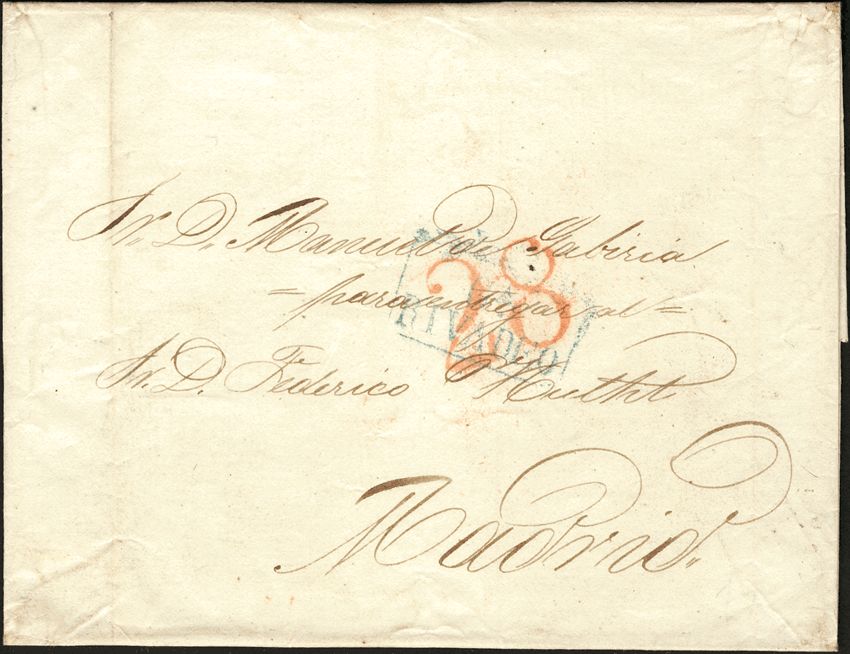 Sr. D. Manuel de Gabiria
= para entregar al =
Sr. D. Federico
Madrid.
28
RIVADEO